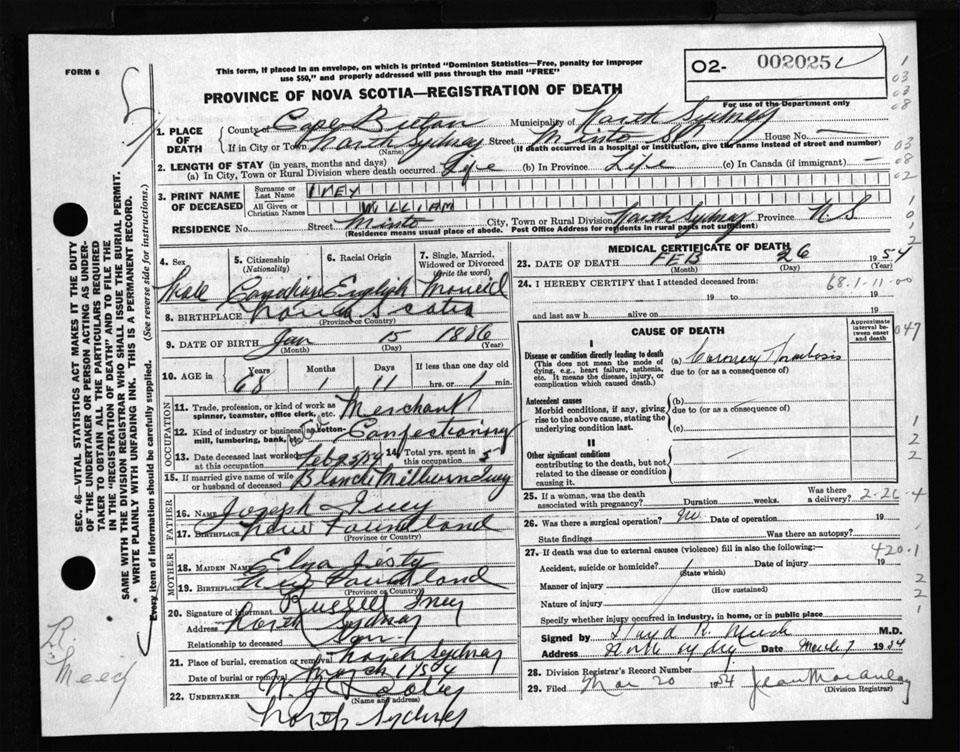 FORM 6
This form, if placed in an envelope, on which is printed "Dominion Statistics—Free, penalty for improper
use $50," and properly addressed will pass through the mail "FREE"
O2- 002025
PROVINCE OF NOVA SCOTIA—REGISTRATION OF DEATH
For use of the Department only
1. PLACE OF DEATH
County of Cape Breton Municipality of North Sydney
If in City or Town North Sydney Street Minto St House No. —
(Name) (If death occurred in a hospital or institution, give the name instead of street and number)
2. LENGTH OF STAY (in years, months and days)
(a) In City, Town or Rural Division where death occurred Life (b) In Province Life (c) In Canada (if immigrant) —
3. PRINT NAME OF DECEASED
Surname or Last Name IVEY
All Given or Christian Names WILLIAM
RESIDENCE No. Street Minto City, Town or Rural Division North Sydney Province N.S.
(Residence means usual place of abode. Post Office Address for residents in rural parts not sufficient)
4. Sex Male
5. Citizenship (Nationality) Canadian
6. Racial Origin English
7. Single, Married, Widowed or Divorced (Write the word) Married
8. BIRTHPLACE Nova Scotia
(Province or Country)
9. DATE OF BIRTH Jan 15 1886
(Month) (Day) (Year)
10. AGE Years Months Days If less than one day old
68 1 11 hrs. or min.
OCCUPATION
11. Trade, profession, or kind of work as spinner, teamster, office clerk, etc. Merchant
12. Kind of industry or business, as cotton-mill, lumbering, bank, etc. Confectionery
13. Date deceased last worked at this occupation Feb 25/54
14. Total yrs. spent in this occupation 5
15. If married give name of wife or husband of deceased Blanche Milburn Ivey
FATHER
16. Name Joseph Ivey
17. Birthplace Newfoundland
(Province or Country)
MOTHER
18. MAIDEN NAME
19. BIRTHPLACE Newfoundland
(Province or Country)
20. Signature of informant Russell Ivey
Address North Sydney
Relationship to deceased Son
21. Place of burial, cremation or removal North Sydney
Date of burial or removal March 1 54
22. UNDERTAKER
(Name and address)
North Sydney
MEDICAL CERTIFICATE OF DEATH
23. DATE OF DEATH FEB 26 1954
(Month) (Day) (Year)
24. I HEREBY CERTIFY that I attended deceased from:
68-1-11-00
19 to 19
and last saw h alive on 19
CAUSE OF DEATH
Approximate interval between onset and death
I
Disease or condition directly leading to death
(This does not mean the mode of dying, e.g., heart failure, asthenia, etc. It means the disease, injury, or complication which caused death.)
(a) Coronary Thrombosis
due to (or as a consequence of)
Antecedent causes
Morbid conditions, if any, giving rise to the above cause, stating the underlying condition last.
(b)
due to (or as a consequence of)
(c)
II
Other significant conditions
contributing to the death, but not related to the disease or condition causing it.
25. If a woman, was the death associated with pregnancy? Duration weeks. Was there a delivery?
2-26-4
26. Was there a surgical operation? No Date of operation 19
State findings Was there an autopsy?
27. If death was due to external causes (violence) fill in also the following:—
420.1
Accident, suicide or homicide? Date of injury 19
(State which)
Manner of injury
(How sustained)
Nature of injury
Specify whether injury occurred in industry, in home, or in public place
Signed by M.D.
Address North Sydney Date March 7 1954
28. Division Registrar's Record Number
29. Filed Mar 20 1954 Jean MacAulay
(Division Registrar)
SEC. 46—VITAL STATISTICS ACT MAKES IT THE DUTY
OF THE UNDERTAKER OR PERSON ACTING AS UNDER-
TAKER TO OBTAIN ALL THE PARTICULARS REQUIRED
IN THE "REGISTRATION OF DEATH" AND TO FILE THE
SAME WITH THE DIVISION REGISTRAR WHO SHALL ISSUE THE BURIAL PERMIT.
WRITE PLAINLY WITH UNFADING INK. THIS IS A PERMANENT RECORD.
Every item of information should be carefully supplied. (See reverse side for instructions.)
1
03
03
08
03
08
02
1
0
1
2
047
1
2
2
1
2
2
1